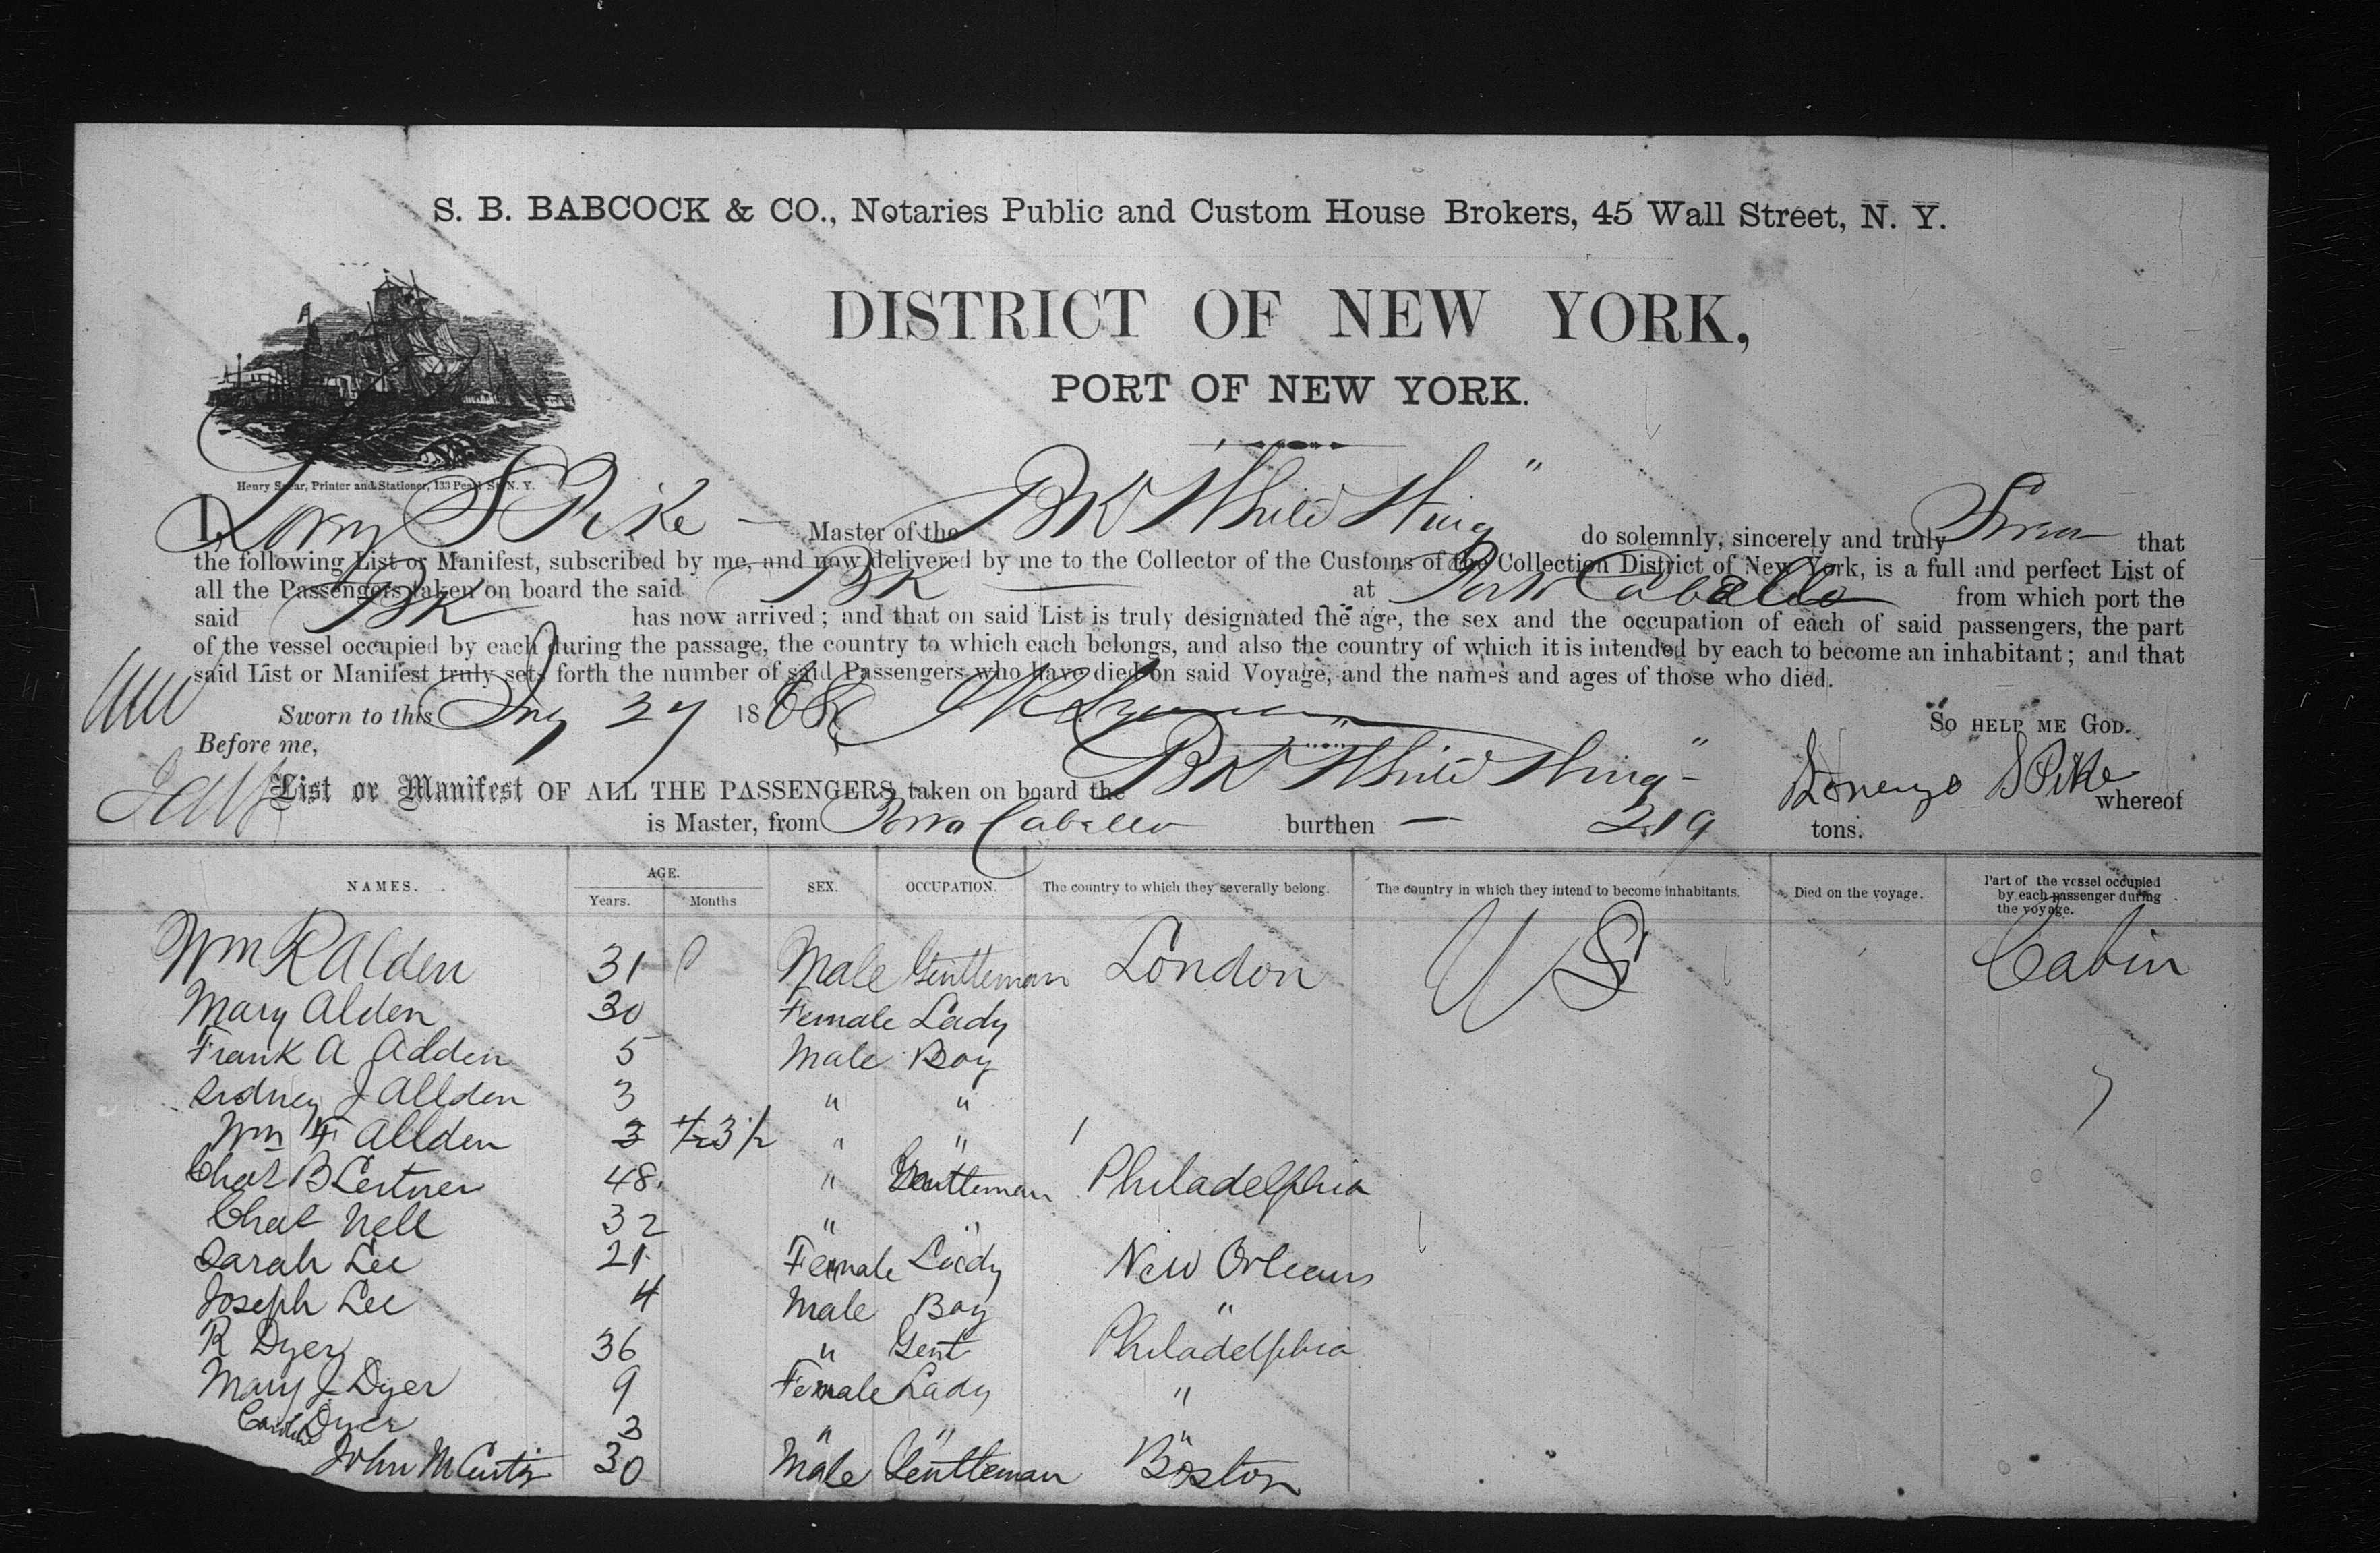 S. B. BABCOCK & CO., Notaries Public and Custom House Brokers, 45 Wall Street, N. Y.
DISTRICT OF NEW YORK,
PORT OF NEW YORK.
Henry Spear, Printer and Stationer, 133 Pearl St. N. Y.
I, S Pike — Master of the BK White Wing" do solemnly, sincerely and truly Swear that
the following List or Manifest, subscribed by me, and now delivered by me to the Collector of the Customs of the Collection District of New York, is a full and perfect List of
all the Passengers taken on board the said BK — at Porto Cabello from which port the
said BK has now arrived; and that on said List is truly designated the age, the sex and the occupation of each of said passengers, the part
of the vessel occupied by each during the passage, the country to which each belongs, and also the country of which it is intended by each to become an inhabitant; and that
said List or Manifest truly sets forth the number of said Passengers who have died on said Voyage, and the names and ages of those who died.
Sworn to this 27 1868 SO HELP ME GOD.
Before me,
List or Manifest OF ALL THE PASSENGERS taken on board the BK "White Wing" Lorenzo S Pike whereof
is Master, from Porto Cabello burthen — 219 tons.
NAMES. AGE. Years. Months SEX. OCCUPATION. The country to which they severally belong. The country in which they intend to become inhabitants. Died on the voyage. Part of the vessel occupied by each passenger during the voyage.
Wm R Alden 31 Male Gentleman London U S Cabin
Mary Alden 30 Female Lady
Frank A Adden 5 Male Boy
Sidney J Allden 3 " "
Wm F Allden 3 3 1/2 " "
Chas B Lertner 48 " Gentleman Philadelphia
Chas Nell 32 " "
Sarah Lee 21 Female Lady New Orleans
Joseph Lee 4 Male Boy "
R Dyer 36 " Gent Philadelphia
Mary J Dyer 9 Female Lady "
Dyer 3 " " "
John M Curtis 30 Male Gentleman Boston